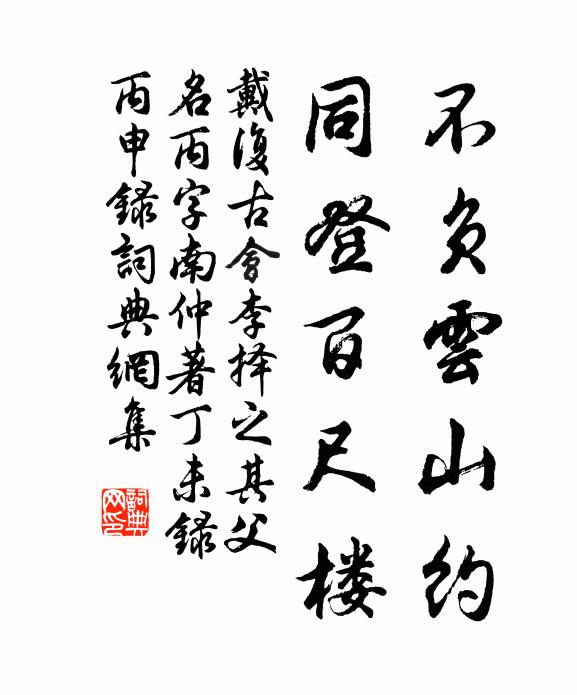 不負雲山約
同登百尺楼
戴復古會李择之其父
名丙字南仲著丁未録
丙申録詞典網集
詞典网印